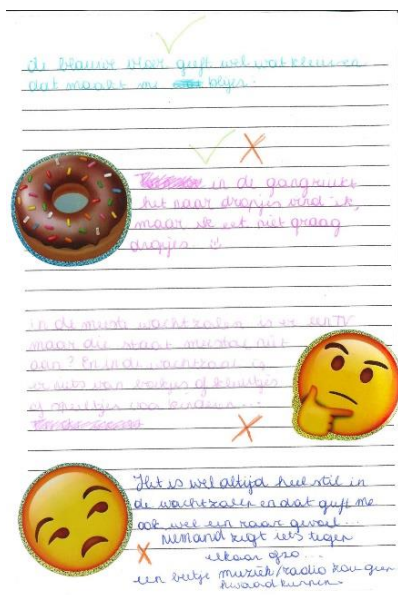 de blauwe vloer geeft wel wat kleur en
dat maakt me blijer.
in de gang ruikt
het naar dropjes vind ik,
maar ik eet niet graag
dropjes. :)
in de meeste wachtzalen is er een TV
maar die staat meestal niet
aan? En in de wachtzaal is
er niets van boekjes of kleurtjes
of speeltjes voor kinderen...
Het is wel altijd heel stil in
de wachtzalen en dat geeft me
ook wel een raar gevoel...
niemand zegt iets tegen
elkaar ofzo...
een beetje muziek/radio kou geen
kwaad kunnen